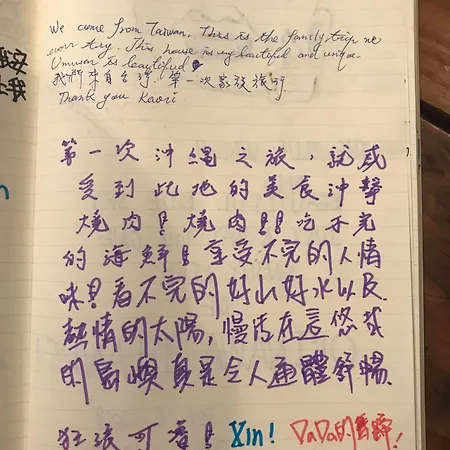 We come from Taiwan. This is the family trip we
ever try. This house is very beautiful and unique.
Umusun is beautiful
我們來自台灣. 第一次家族旅行
Thank you Kaori
第一次沖繩之旅，就感
受到此地的美食沖擊
燒肉!! 燒肉!!! 吃不完
的海鮮!! 享受不完的人情
味具看不完的好山好水以及
熱情的太陽，慢活在這悠哉
的島嶼真是令人通體舒暢.
可 Xin! DaDa的